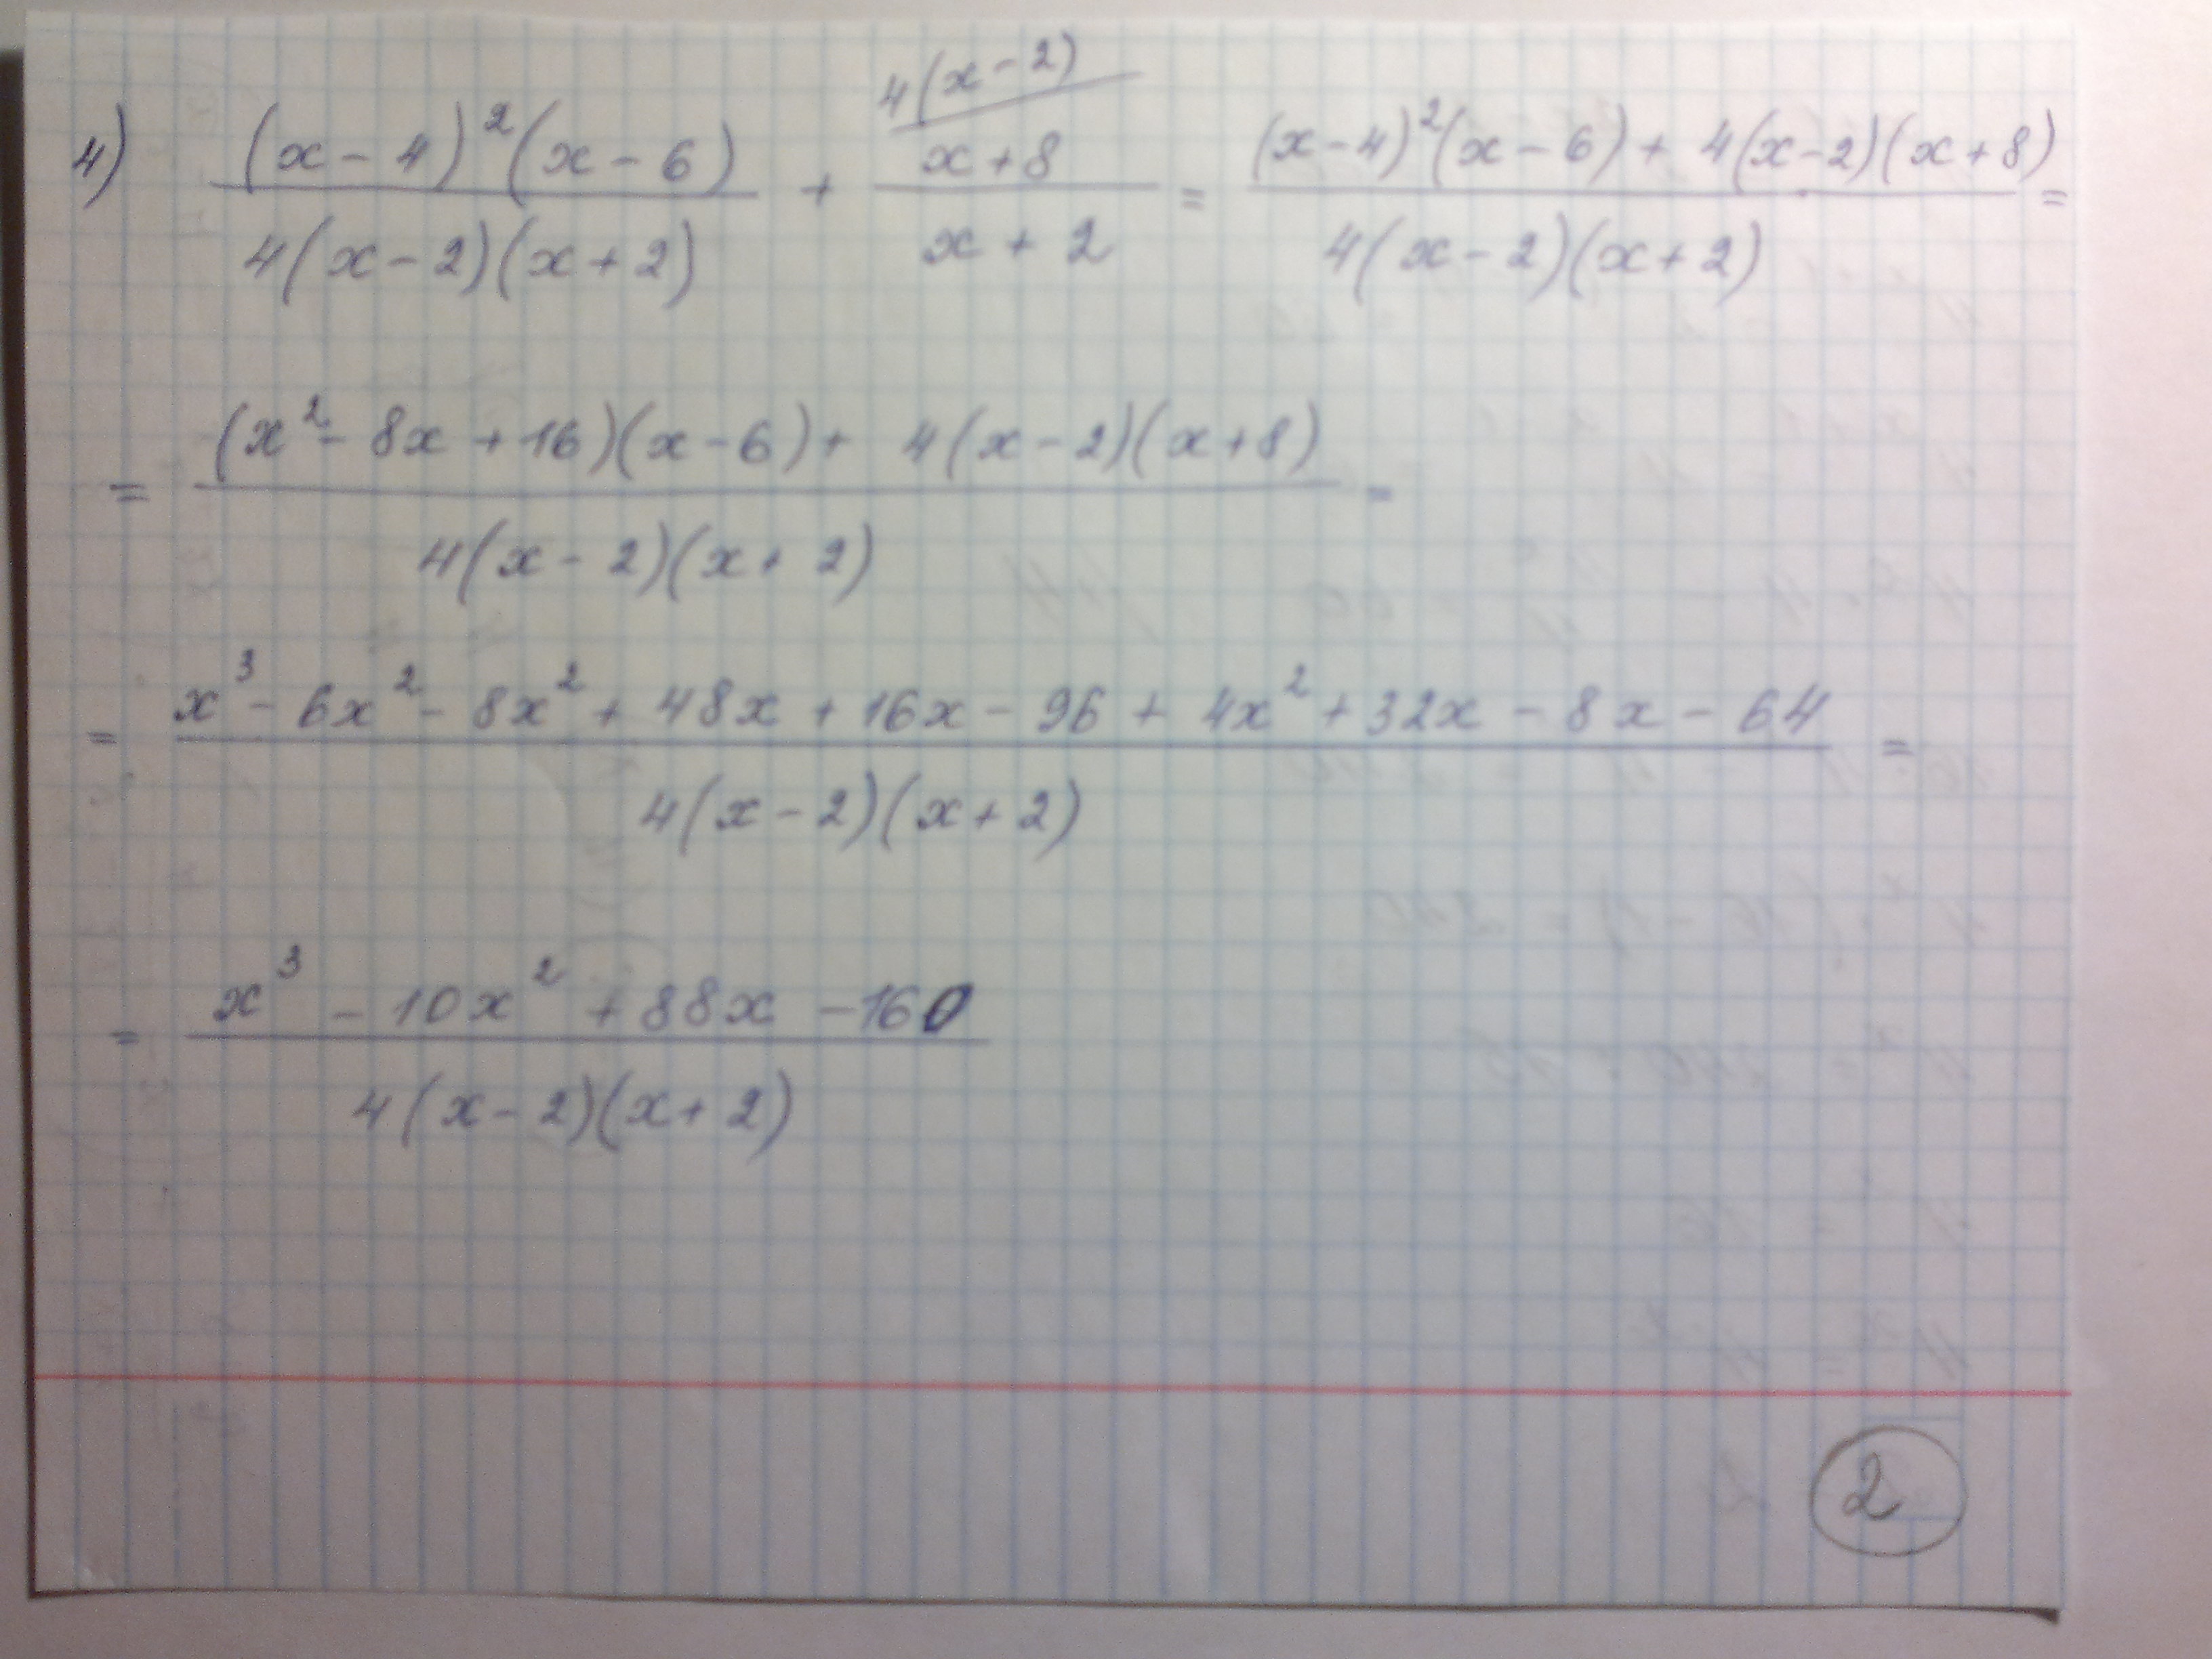 4) (x - 4)²(x - 6) / 4(x - 2)(x + 2) + 4(x - 2)/ x + 8 / x + 2 = (x - 4)²(x - 6) + 4(x - 2)(x + 8) / 4(x - 2)(x + 2) =
= (x² - 8x + 16)(x - 6) + 4(x - 2)(x + 8) / 4(x - 2)(x + 2) =
= x³ - 6x² - 8x² + 48x + 16x - 96 + 4x² + 32x - 8x - 64 / 4(x - 2)(x + 2) =
= x³ - 10x² + 88x - 160 / 4(x - 2)(x + 2)
2